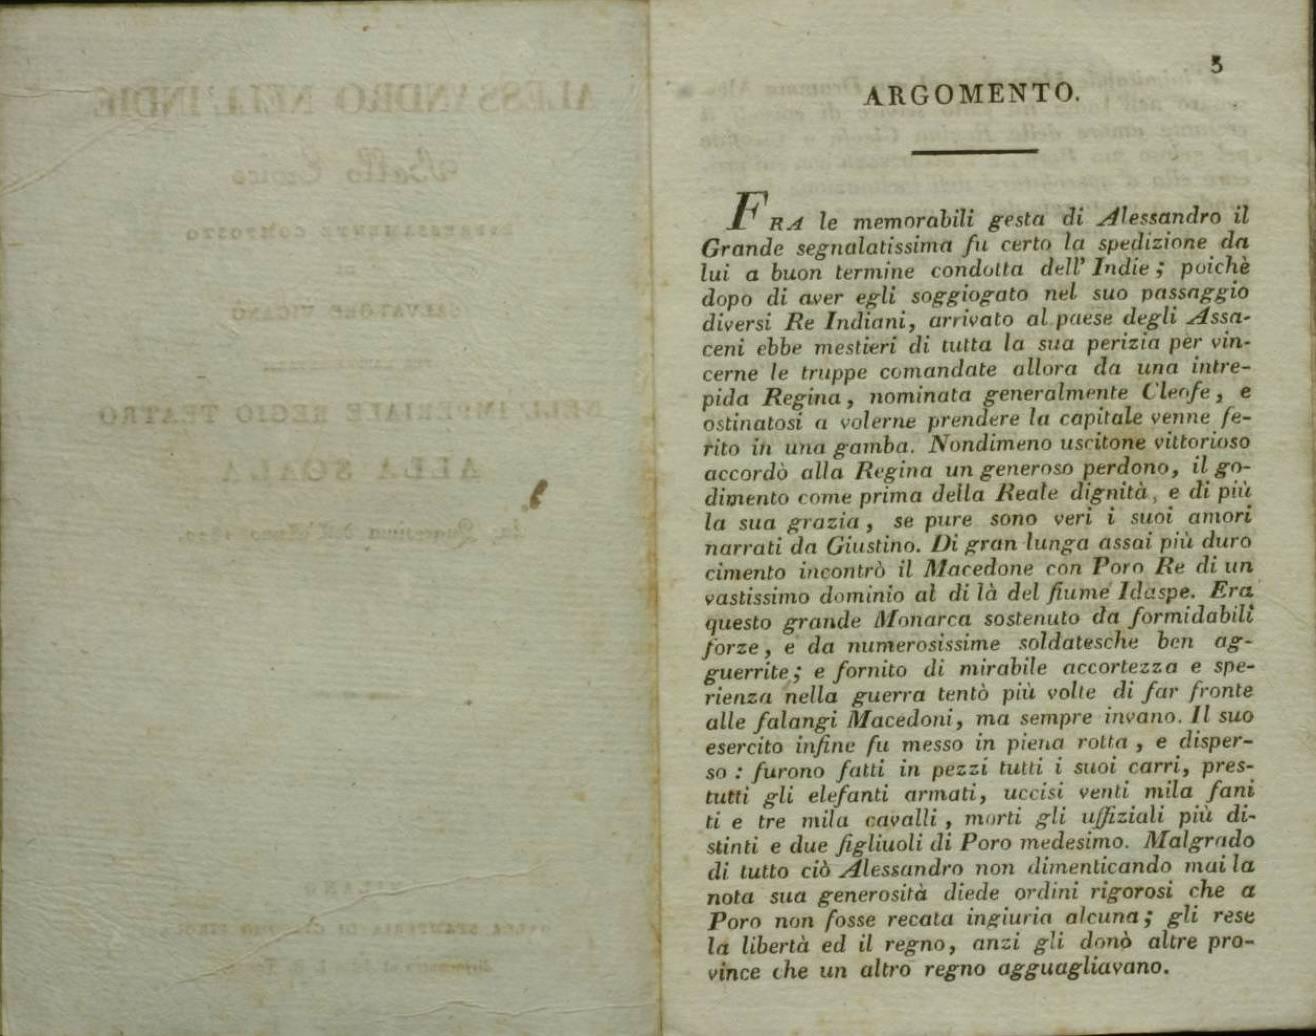 3
ARGOMENTO.
FRA le memorabili gesta di Alessandro il
Grande segnalatissima fu certo la spedizione da
lui a buon termine condotta dell' Indie; poichè
dopo di aver egli soggiogato nel suo passaggio
diversi Re Indiani, arrivato al paese degli Assa-
ceni ebbe mestieri di tutta la sua perizia per vin-
cerne le truppe comandate allora da una intre-
pida Regina, nominata generalmente Cleofe, e
ostinatosi a volerne prendere la capitale venne fe-
rito in una gamba. Nondimeno uscitone vittorioso
accordò alla Regina un generoso perdono, il go-
dimento come prima della Reale dignità, e di più
la sua grazia, se pure sono veri i suoi amori
narrati da Giustino. Di gran lunga assai più duro
cimento incontrò il Macedone con Poro Re di un
vastissimo dominio al di là del fiume Idaspe. Era
questo grande Monarca sostenuto da formidabili
forze, e da numerosissime soldatesche ben ag-
guerrite; e fornito di mirabile accortezza e spe-
rienza nella guerra tentò più volte di far fronte
alle falangi Macedoni, ma sempre invano. Il suo
esercito infine fu messo in piena rotta, e disper-
so: furono fatti in pezzi tutti i suoi carri, pres-
tutti gli elefanti armati, uccisi venti mila fani
ti e tre mila cavalli, morti gli uffiziali più di-
stinti e due figliuoli di Poro medesimo. Malgrado
di tutto ciò Alessandro non dimenticando mai la
nota sua generosità diede ordini rigorosi che a
Poro non fosse recata ingiuria alcuna; gli rese
la libertà ed il regno, anzi gli donò altre pro-
vince che un altro regno agguagliavano.